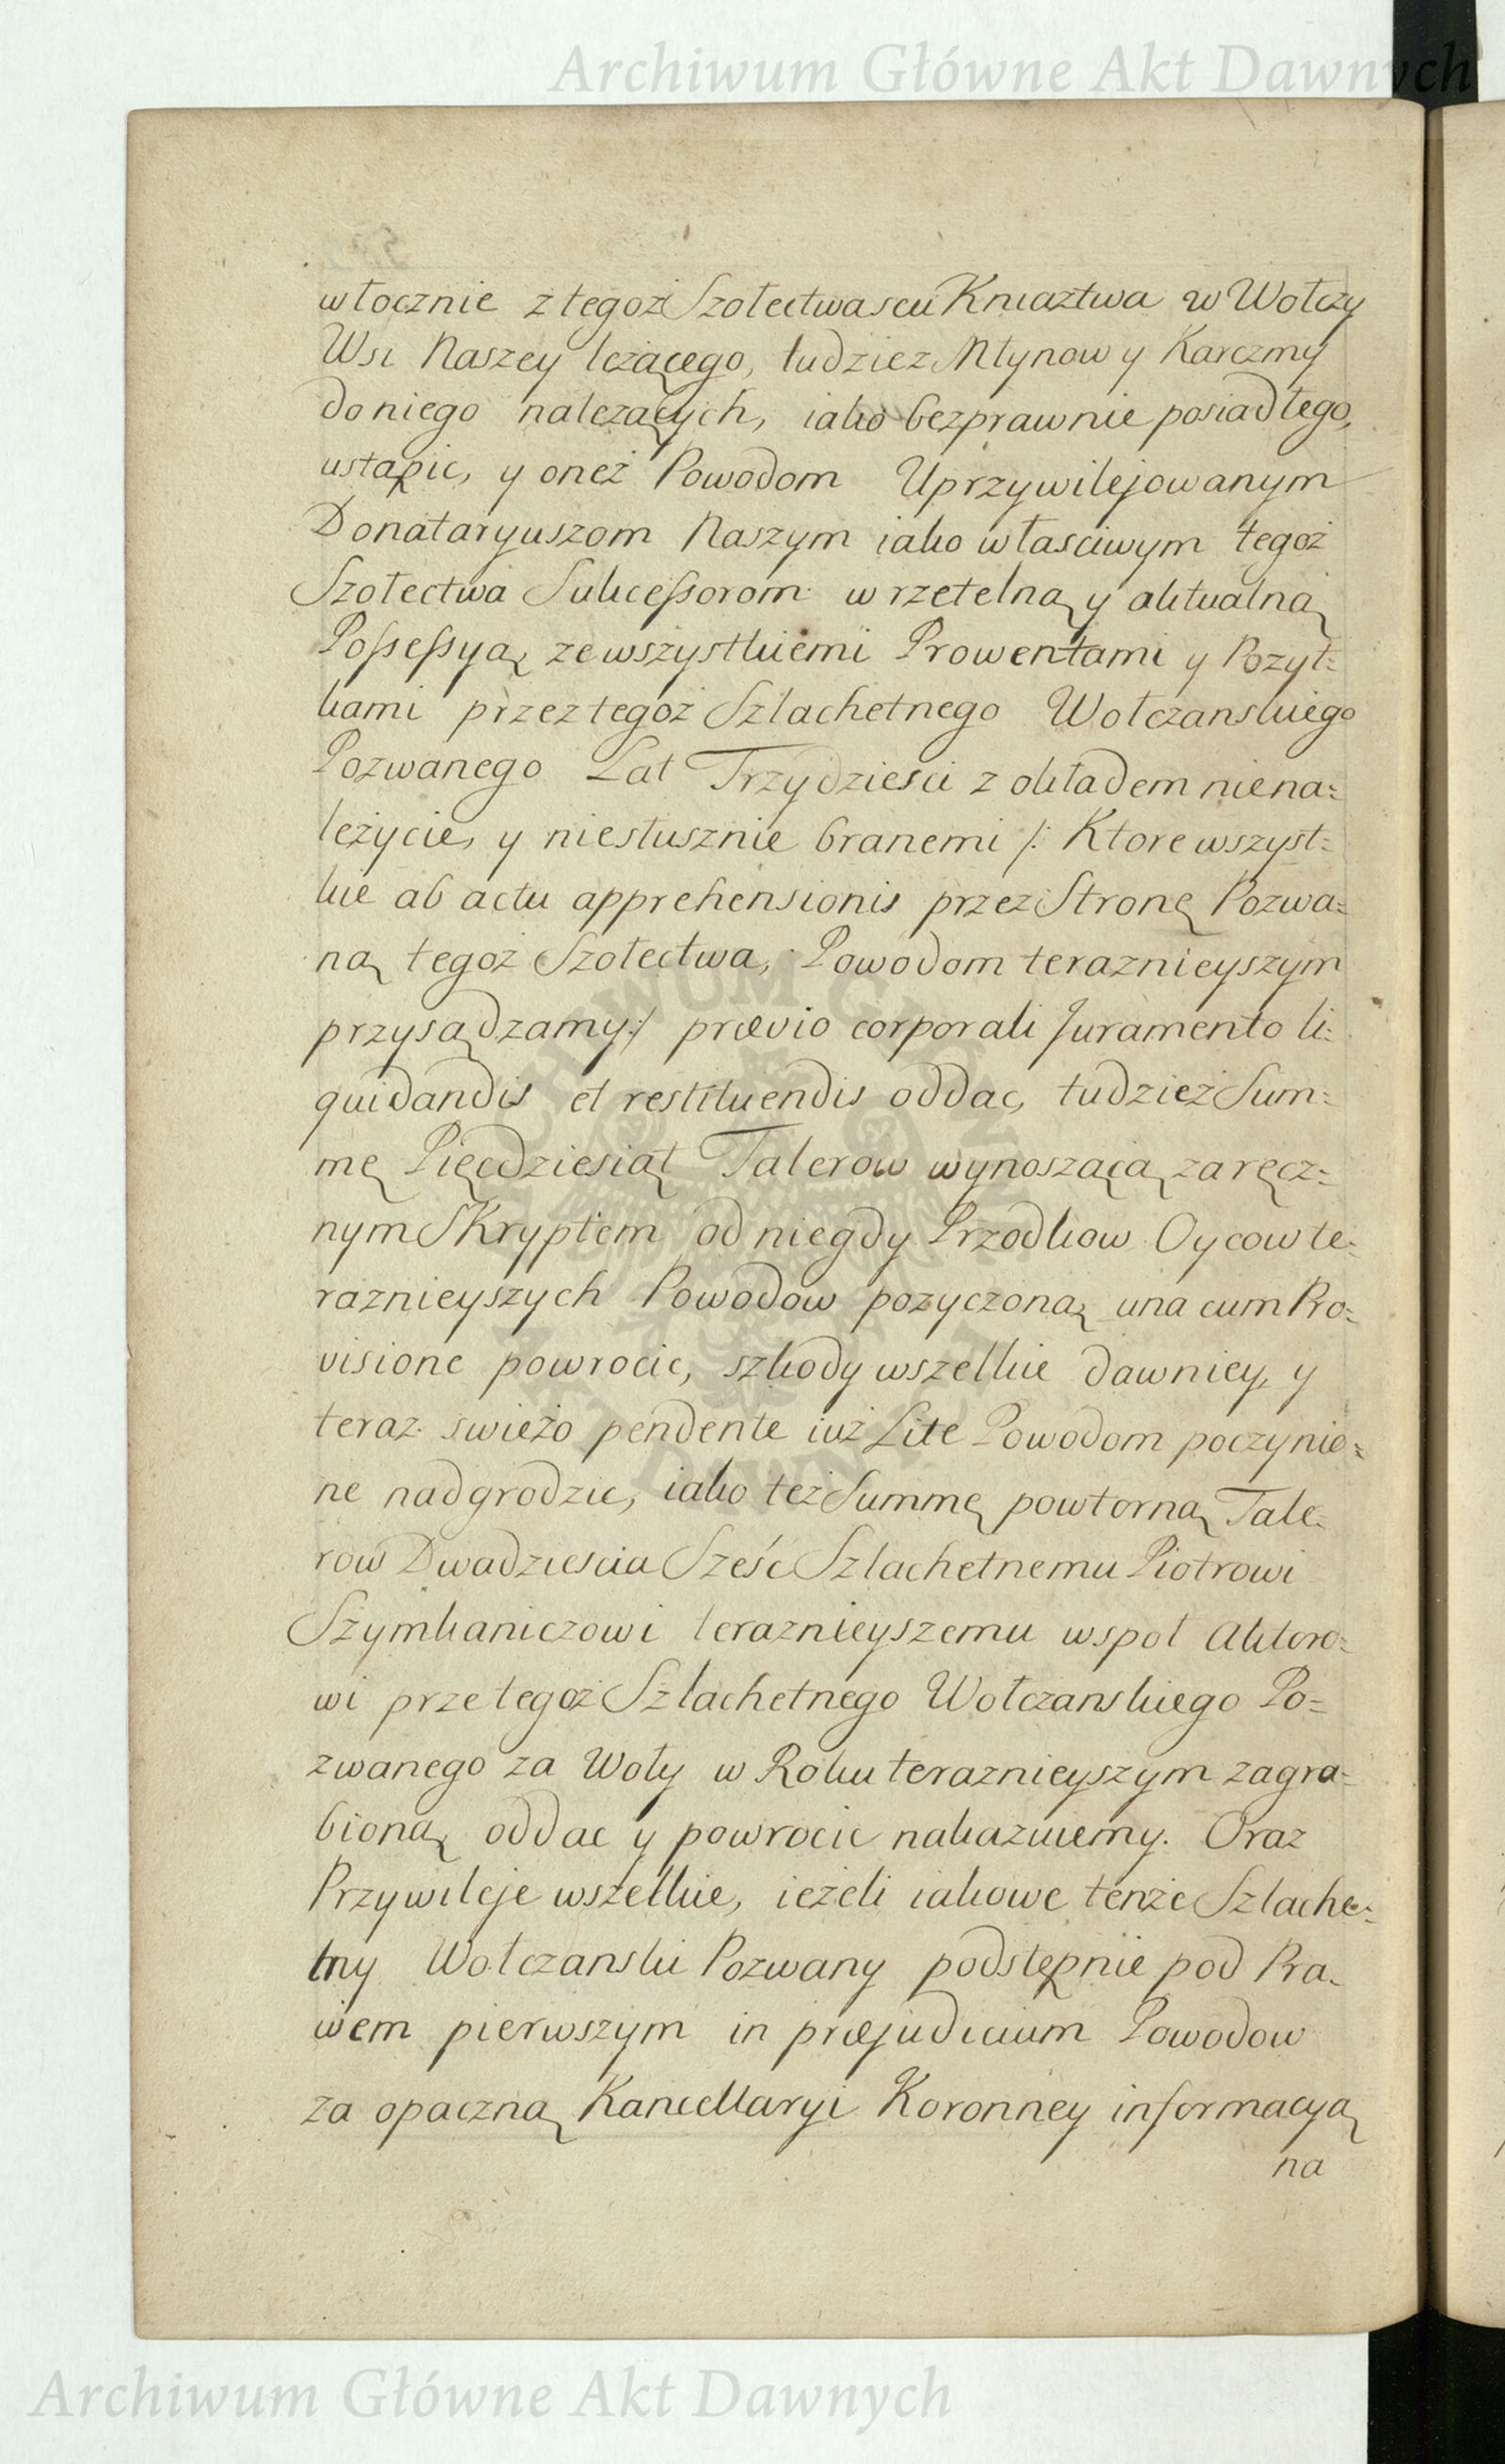 Archiwum Główne Akt Dawnych
włocznie z tegoż Szołectwa seu Kniaztwa w Wołczy
Wsi Naszey leżącego, tudziez Młynow y Karczmy
do niego nalezących, iako bezprawnie posiadłego,
ustąpic, y oneż Powodom Uprzywilejowanym
Donataryuszom Naszym iako własciwym tegoż
Szołectwa Sukcessorom w rzetelną y aktualną
Possessyą ze wszystkiemi Prowentami y Pozyt=
kami przez tegoż Szlachetnego Wołczanskiego
Pozwanego Lat Trzydziesci z okładem niena=
leżycie, y niesłusznie branemi /: Ktore wszyst=
kie ab actu apprehensionis przez Stronę Pozwa=
ną tegoż Szołectwa, Powodom teraznieyszym
przysądzamy :/ prævio corporali Juramento li=
quidandis et restituendis oddac, tudzież Sum=
mę Pięcdziesiąt Talerow wynoszącą za ręcz=
nym Skryptem od niegdy Przodkow Oycow te=
raznieyszych Powodow pozyczoną una cum Pro=
visione powrocic, szkody wszelkie dawniey, y
teraz swieżo pendente iuż Lite Powodom poczynio=
ne nadgrodzic, iako też Summę powtorną Tale=
row Dwadziescia Sześc Szlachetnemu Piotrowi
Szymkaniczowi teraznieyszemu wspoł Aktoro=
wi prze tegoż Szlachetnego Wołczanskiego Po=
zwanego za Woły w Roku teraznieyszym zagra=
bioną oddac y powrocic nakazuiemy. Oraz
Przywileje wszelkie, ieżeli iakowe tenże Szlache=
tny Wołczanski Pozwany podstępnie pod Pra=
wem pierwszym in præjudicium Powodow
za opaczną Kancellaryi Koronney informacyą
na
Archiwum Główne Akt Dawnych